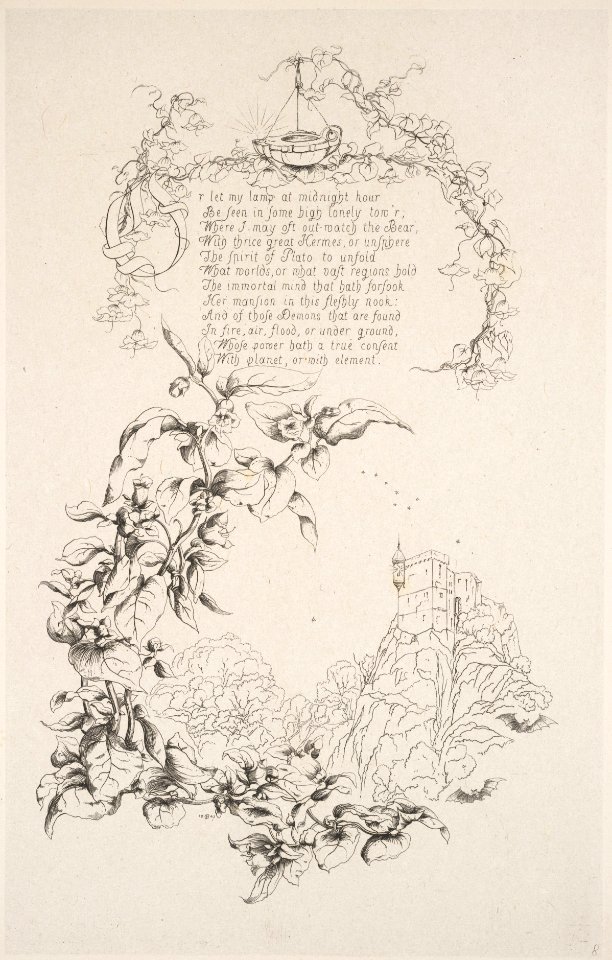 Or let my lamp at midnight hour
Be ſeen in ſome high lonely tow'r,
Where I may oft out-watch the Bear,
With thrice great Hermes, or unſphere
The ſpirit of Plato to unfold
What worlds, or what vaſt regions hold
The immortal mind that hath forſook
Her manſion in this fleſhly nook:
And of thoſe Demons that are found
In fire, air, flood, or under ground,
Whoſe power hath a true conſent
With planet, or with element.
8